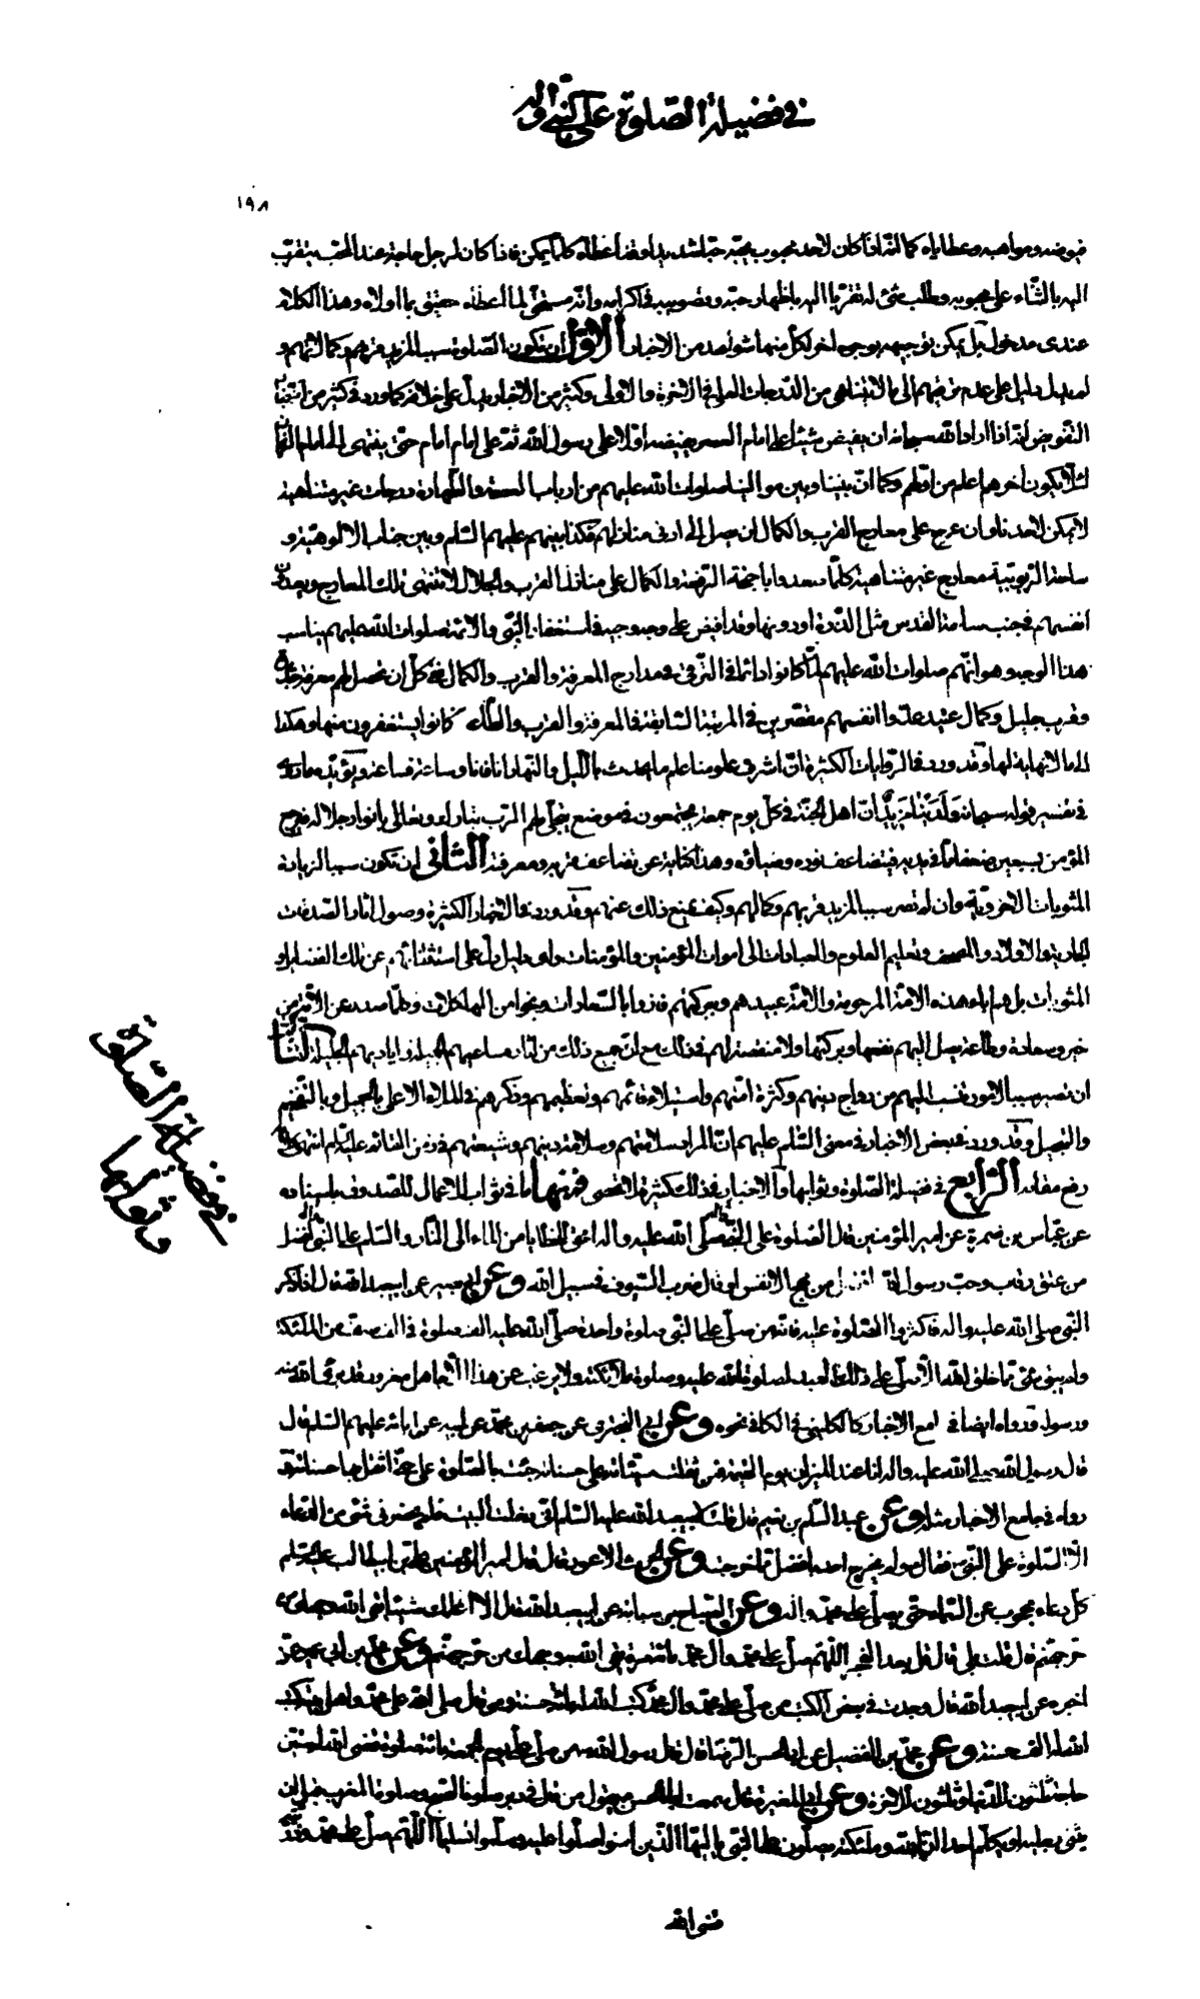 في فضيلة الصلوة على النبي وآله
١٩٨
فيوضه ومواهبه وعطاياه كما انه اذا كان لاحد محبوب يحبه حبا شديدا وقد اعطاه كلما يمكن فاذا كان لرجل حاجة عند المحب يتقرب
اليه بالثناء على محبوبه وطلب شئ له تقربا اليه باظهار حبه وتصويبه في اكرامه وانه مستحق لما اعطاه حقيق بما اولاه وهذا الكلام
عندي مدخول بل يمكن توجيهه بوجوه اخر لكل منها شواهد من الاخبار الاول ان تكون الصلوة سببا لمزيد قربهم وكمالاتهم و
لم يدل دليل على عدم ترقيهم الى ما لا يتناهى من الدرجات العلى في الاخرة والاولى وكثير من الاخبار يدل على خلافه كما ورد في كثير من اخبار
التفويض انه اذا اراد الله سبحانه ان يفيض شيئا على امام العصر يفيضه اولا على رسول الله ثم على امام امام حتى ينتهى الى امام الزمان
لئلا يكون آخرهم اعلم من اولهم وكما ان بيننا وبين موالينا صلوات الله عليهم من ارباب العصمة والطهارة درجات غير متناهية
لا يمكن لاحدنا وان عرج على معارج القرب والكمال ان يصل الى ادنى منازلهم فكذا بينهم عليهم السلم وبين جناب الالوهية و
ساحة الربوبية معارج غير متناهية كلما صعدوا باجنحة الرفعة والكمال على منازل القرب والجلال لا تنتهى تلك المعارج ويعدون
انفسهم في جنب ساحة القدس مثل الذرة او دونها وقد افيض على وجه وجيه في استغفار النبي والائمة صلوات الله عليهم يناسب
هذا الوجه وهو انهم صلوات الله عليهم لما كانوا دائما في الترقي في مدارج المعرفة والقرب والكمال ففي كل آن تحصل لهم معرفة جديدة
وقرب جليل وكمال عتيد عدوا انفسهم مقصرين في المرتبة السابقة في المعرفة والقرب والطاعة كانوا يستغفرون منها وهكذا
الى ما لا نهاية لها وقد ورد في الروايات الكثيرة ان اشرف علومنا علم ما يحدث بالليل والنهار انا فانا وساعة فساعة ويؤيده ما روى
في تفسير قوله سبحانه ولدينا مزيد ان اهل الجنة في كل يوم جمعة يجتمعون في موضع يتجلى لهم الرب تبارك وتعالى بانوار جلاله فيرجع
المؤمن بسبعين ضعفا مما في يديه فيتضاعف نوره وضياؤه وهذا كناية عن تضاعف قربه ومعرفته الثاني ان تكون سببا لزيادة
المثوبات الاخروية وان لم تصر سببا لمزيد قربهم وكمالهم وكيف يمنع ذلك عنهم وقد ورد في الاخبار الكثيرة وصول اثار الصدقات
الجارية والاولاد والمصحف وتعليم العلوم والعبادات الى اموات المؤمنين والمؤمنات واى دليل دل على استثنائهم عن تلك الفضايل و
المثوبات بل هم اباء هذه الامة المرحومة والامة عبيدهم وببركتهم فازوا بالسعادات ونجوا من الهلكات وكلما صدر عن الامة من
خير وسعادة وطاعة يصل اليهم نفعها وبركتها ولا منقصة لهم في ذلك مع ان جميع ذلك من اثار مساعيهم الجميلة واياديهم الجليلة الثالث
ان تصير سببا لامور تنسب اليهم من رواج دينهم وكثرة امتهم واستيلاء قائمهم وتعظيمهم وذكرهم في الملاء الاعلى بالجميل وبالتفخيم
والتبجيل وقد ورد في بعض الاخبار في معنى السلام عليهم ان المراد سلامتهم وسلامة دينهم وشيعتهم في زمن القائم عليه السلام انتهى
رفع مقامه الرابع في فضيلة الصلوة وثوابها والاخبار في ذلك كثيرة لا تحصى فمنها ما في ثواب الاعمال للصدوق باسناده
عن عباس بن ضمرة عن امير المؤمنين قال الصلوة على النبي صلى الله عليه واله امحق للخطايا من الماء الى النار والسلام على النبي افضل
من عتق رقاب وحب رسول الله افضل من مهج الانفس او قال ضرب السيوف في سبيل الله وعن ابي بصير عن ابيعبدالله قال اذا ذكر
النبي صلى الله عليه واله فاكثروا الصلوة عليه فانه من صلى على النبي صلوة واحدة صلى الله عليه الف صلوة في الف صف من الملئكة
ولم يبق شئ مما خلق الله الا صلى على ذلك العبد لصلوة الله عليه وصلوة ملائكته ولا يرغب عن هذا الا جاهل مغرور قد برئ الله منه
ورسوله ورواه ايضا في جامع الاخبار كالكليني في الكافي نحوه وعن ابي البختري عن جعفر بن محمد عن ابيه عن ابائه عليهم السلم قال
قال رسول الله صلى الله عليه واله انا عند الميزان يوم القيمة فمن ثقلت سيئاته على حسناته جئت بالصلوة على حتى اثقل بها حسناته و
رواه في جامع الاخبار مثله وعن عبد السلام بن نعيم قال قلت لابيعبد الله عليه السلم اني دخلت البيت فلم يحضرني شئ من الدعاء
الا الصلوة على النبي فقال ولم يخرج احد افضل مما خرجت وعن الحرث الاعور قال قال امير المؤمنين علي بن ابيطالب عليه السلم
كل دعاء محجوب عن السماء حتى يصلى على محمد واله وعن الصباح بن سيابة عن ابيعبد الله قال الا اعلمك شيئا يقى الله وجهك من
حر جهنم قال قلت بلى قال قل بعد الفجر اللهم صل على محمد وال محمد مائة مرة يقى الله به وجهك من حر جهنم وعن محمد بن ابي عمير عمن
اخبره عن ابيعبد الله قال وجدت في بعض الكتب من صلى على محمد وال محمد كتب الله له مائة حسنة ومن قال صلى الله على محمد واهل بيته كتب
الله له الف حسنة وعن محمد بن الفضيل عن ابي الحسن الرضا قال قال رسول الله من صلى على يوم الجمعة مائة صلوة قضى الله له ستين
حاجة ثلثون للدنيا وثلثون للاخرة وعن ابي المغيرة قال سمعت ابا الحسن يقول من قال في دبر صلوة الصبح وصلوة المغرب قبل ان
يثنى رجليه او يكلم احدا ان الله وملئكته يصلون على النبي يا ايها الذين امنوا صلوا عليه وسلموا تسليما اللهم صل على محمد وذريته
قضى الله
في فضيلة الصلوة
وثوابها